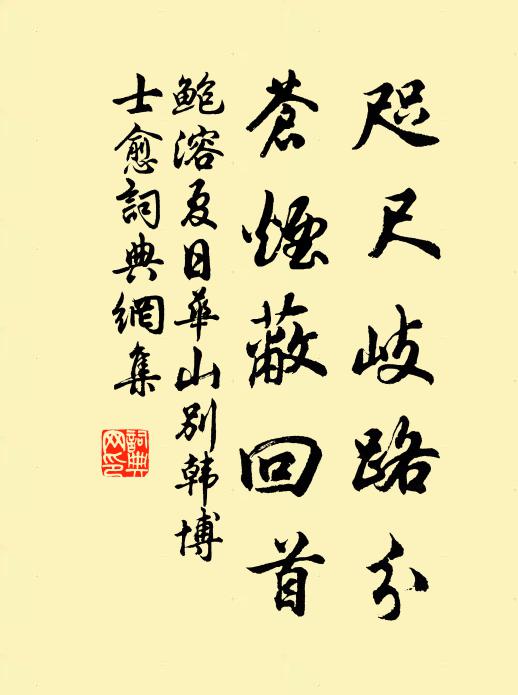 咫尺歧路分
蒼煙蔽回首
鮑溶夏日華山别韩博
士愈詞典網集
詞典
网印